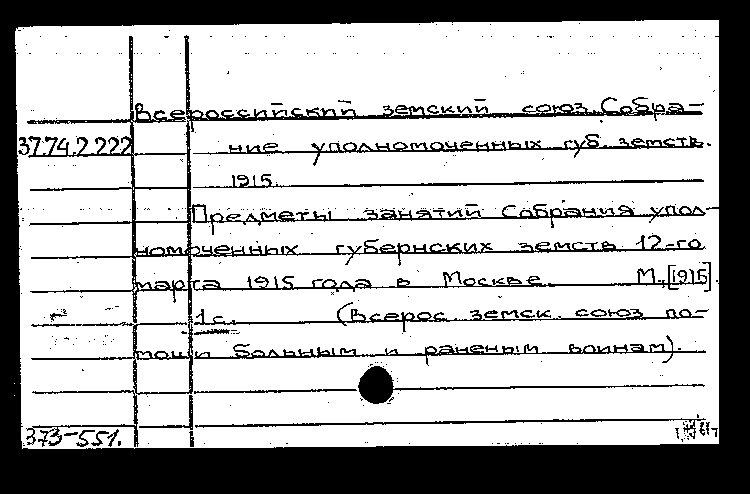 Всероссийский земский союз. Собра-
37.74.2.222 ние уполномоченных губ. земств.
1915.
Предметы занятий Собрания упол-
номоченных губернских земств 12-го
марта 1915 года в Москве. М., [1915].
1 с. (Всерос. земск. союз по-
мощи больным и раненым воинам).
373-551.